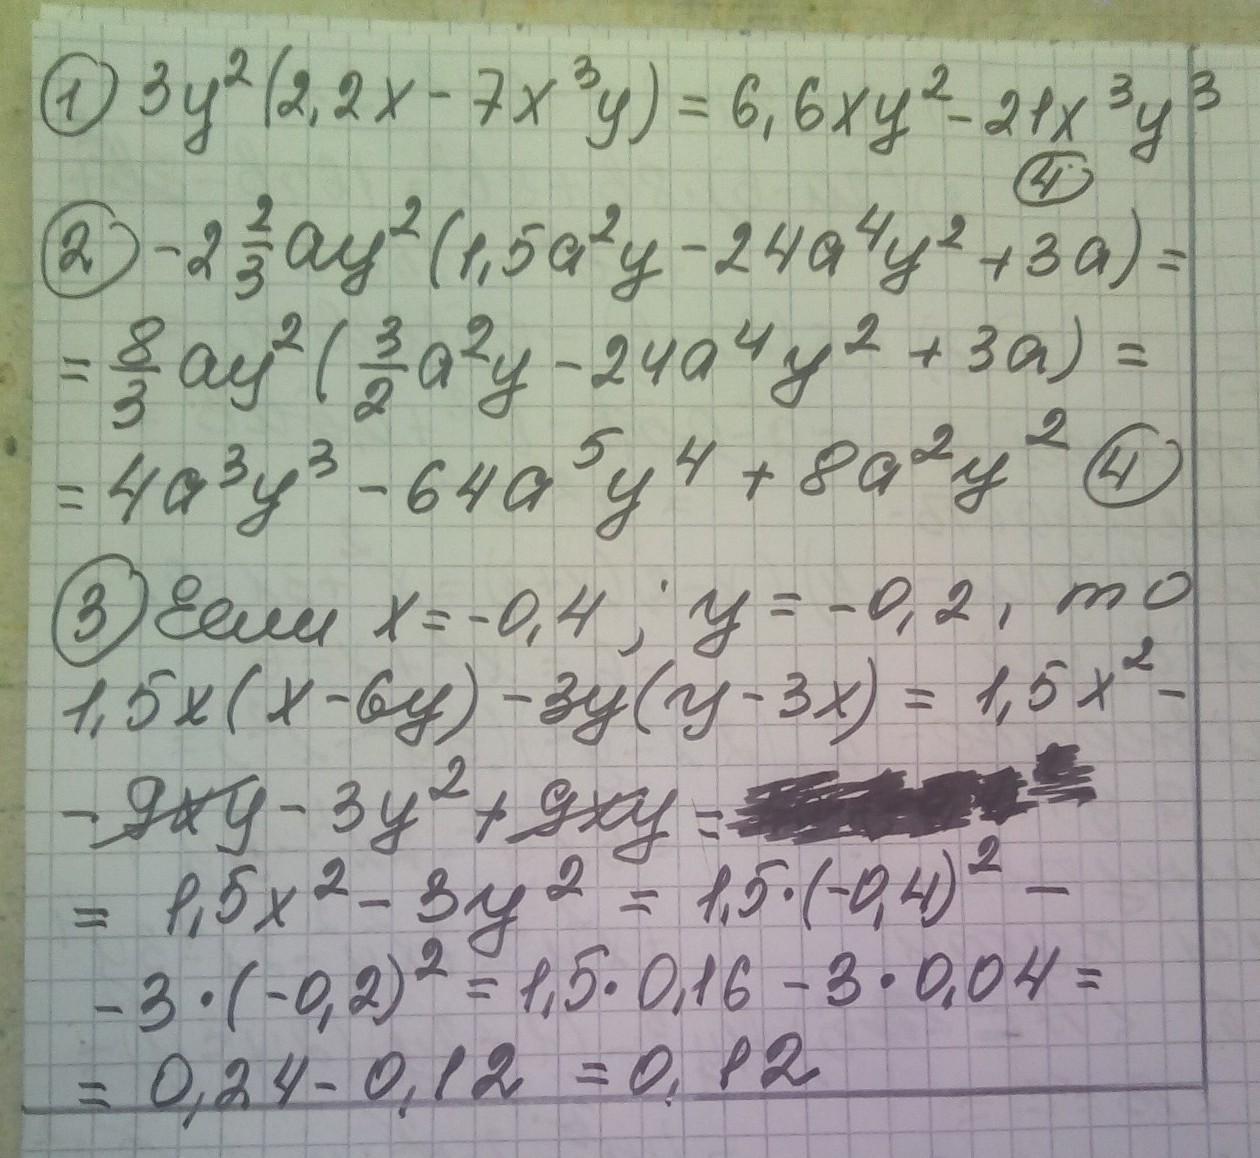 ① 3y²(2,2x - 7x³y) = 6,6xy² - 21x³y³
④
② -2 2/3 ay²(1,5a²y - 24a⁴y² + 3a) =
= 8/3 ay²(3/2 a²y - 24a⁴y² + 3a) =
= 4a³y³ - 64a⁵y⁴ + 8a²y² ④
③ Если x = -0,4; y = -0,2, то
1,5x(x - 6y) - 3y(y - 3x) = 1,5x² -
- 9xy - 3y² + 9xy =
= 1,5x² - 3y² = 1,5·(-0,4)² -
- 3·(-0,2)² = 1,5·0,16 - 3·0,04 =
= 0,24 - 0,12 = 0,12